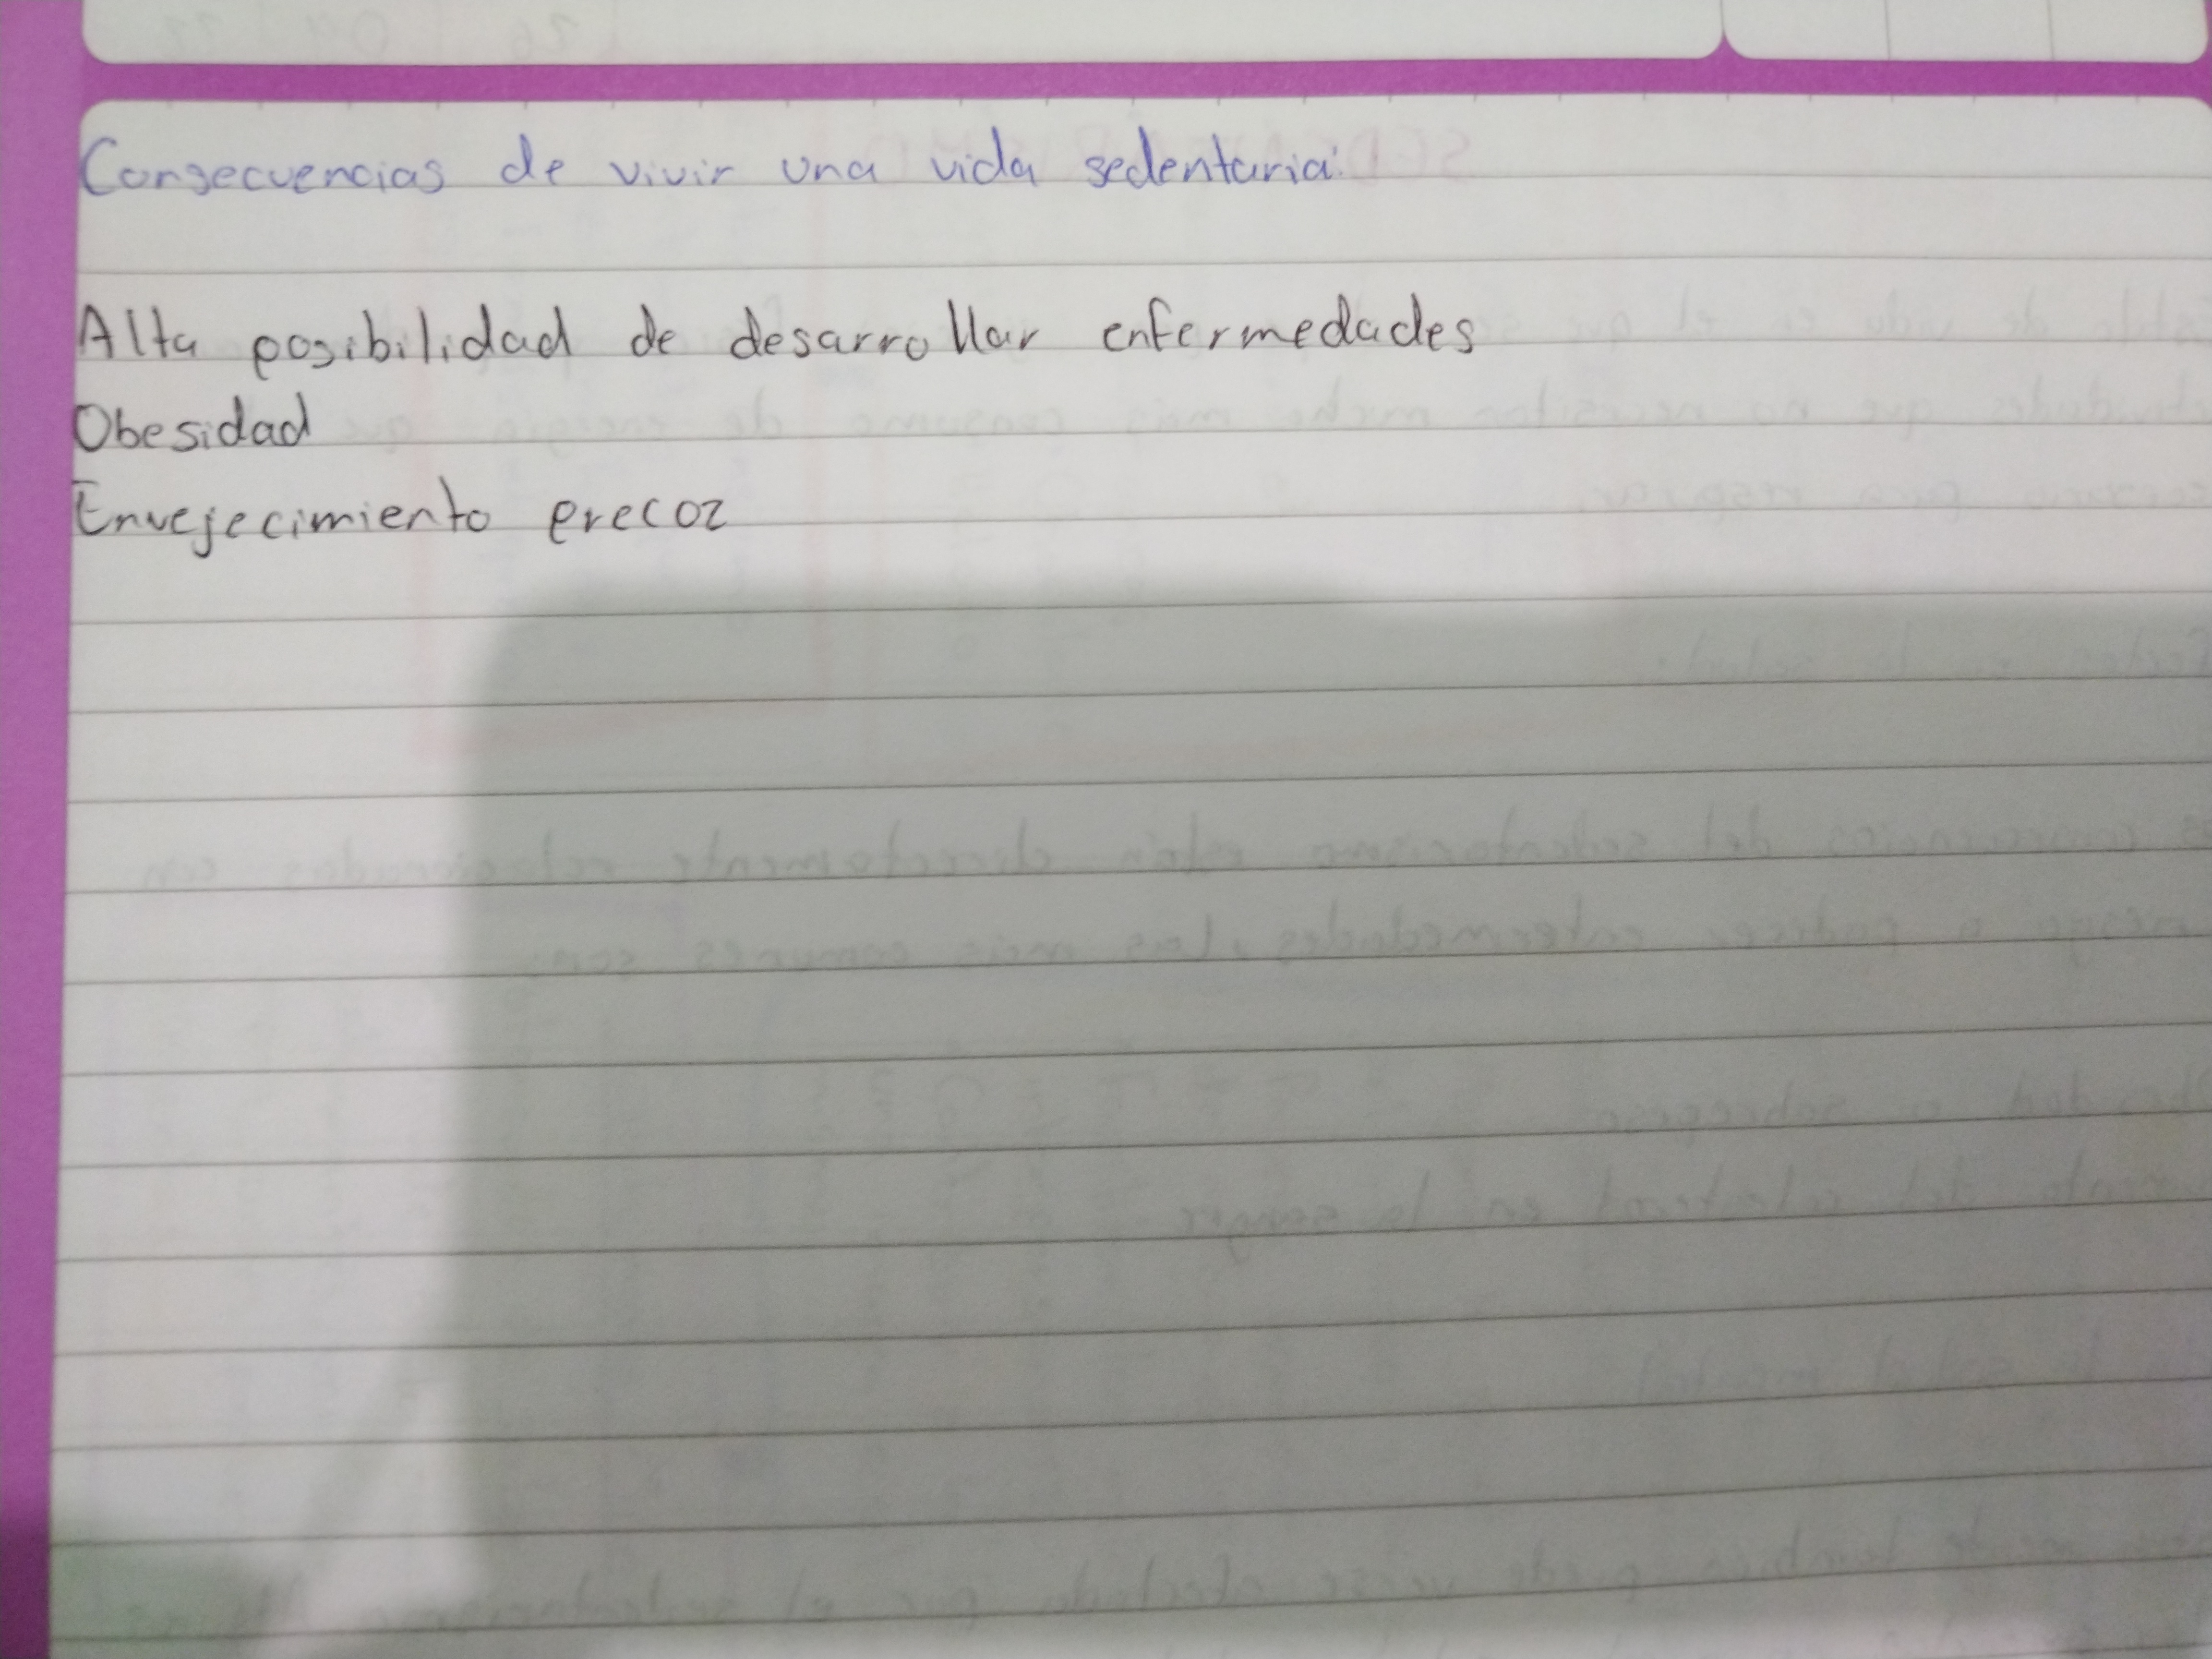 Consecuencias de vivir una vida sedentaria:
Alta posibilidad de desarrollar enfermedades
Obesidad
Envejecimiento precoz